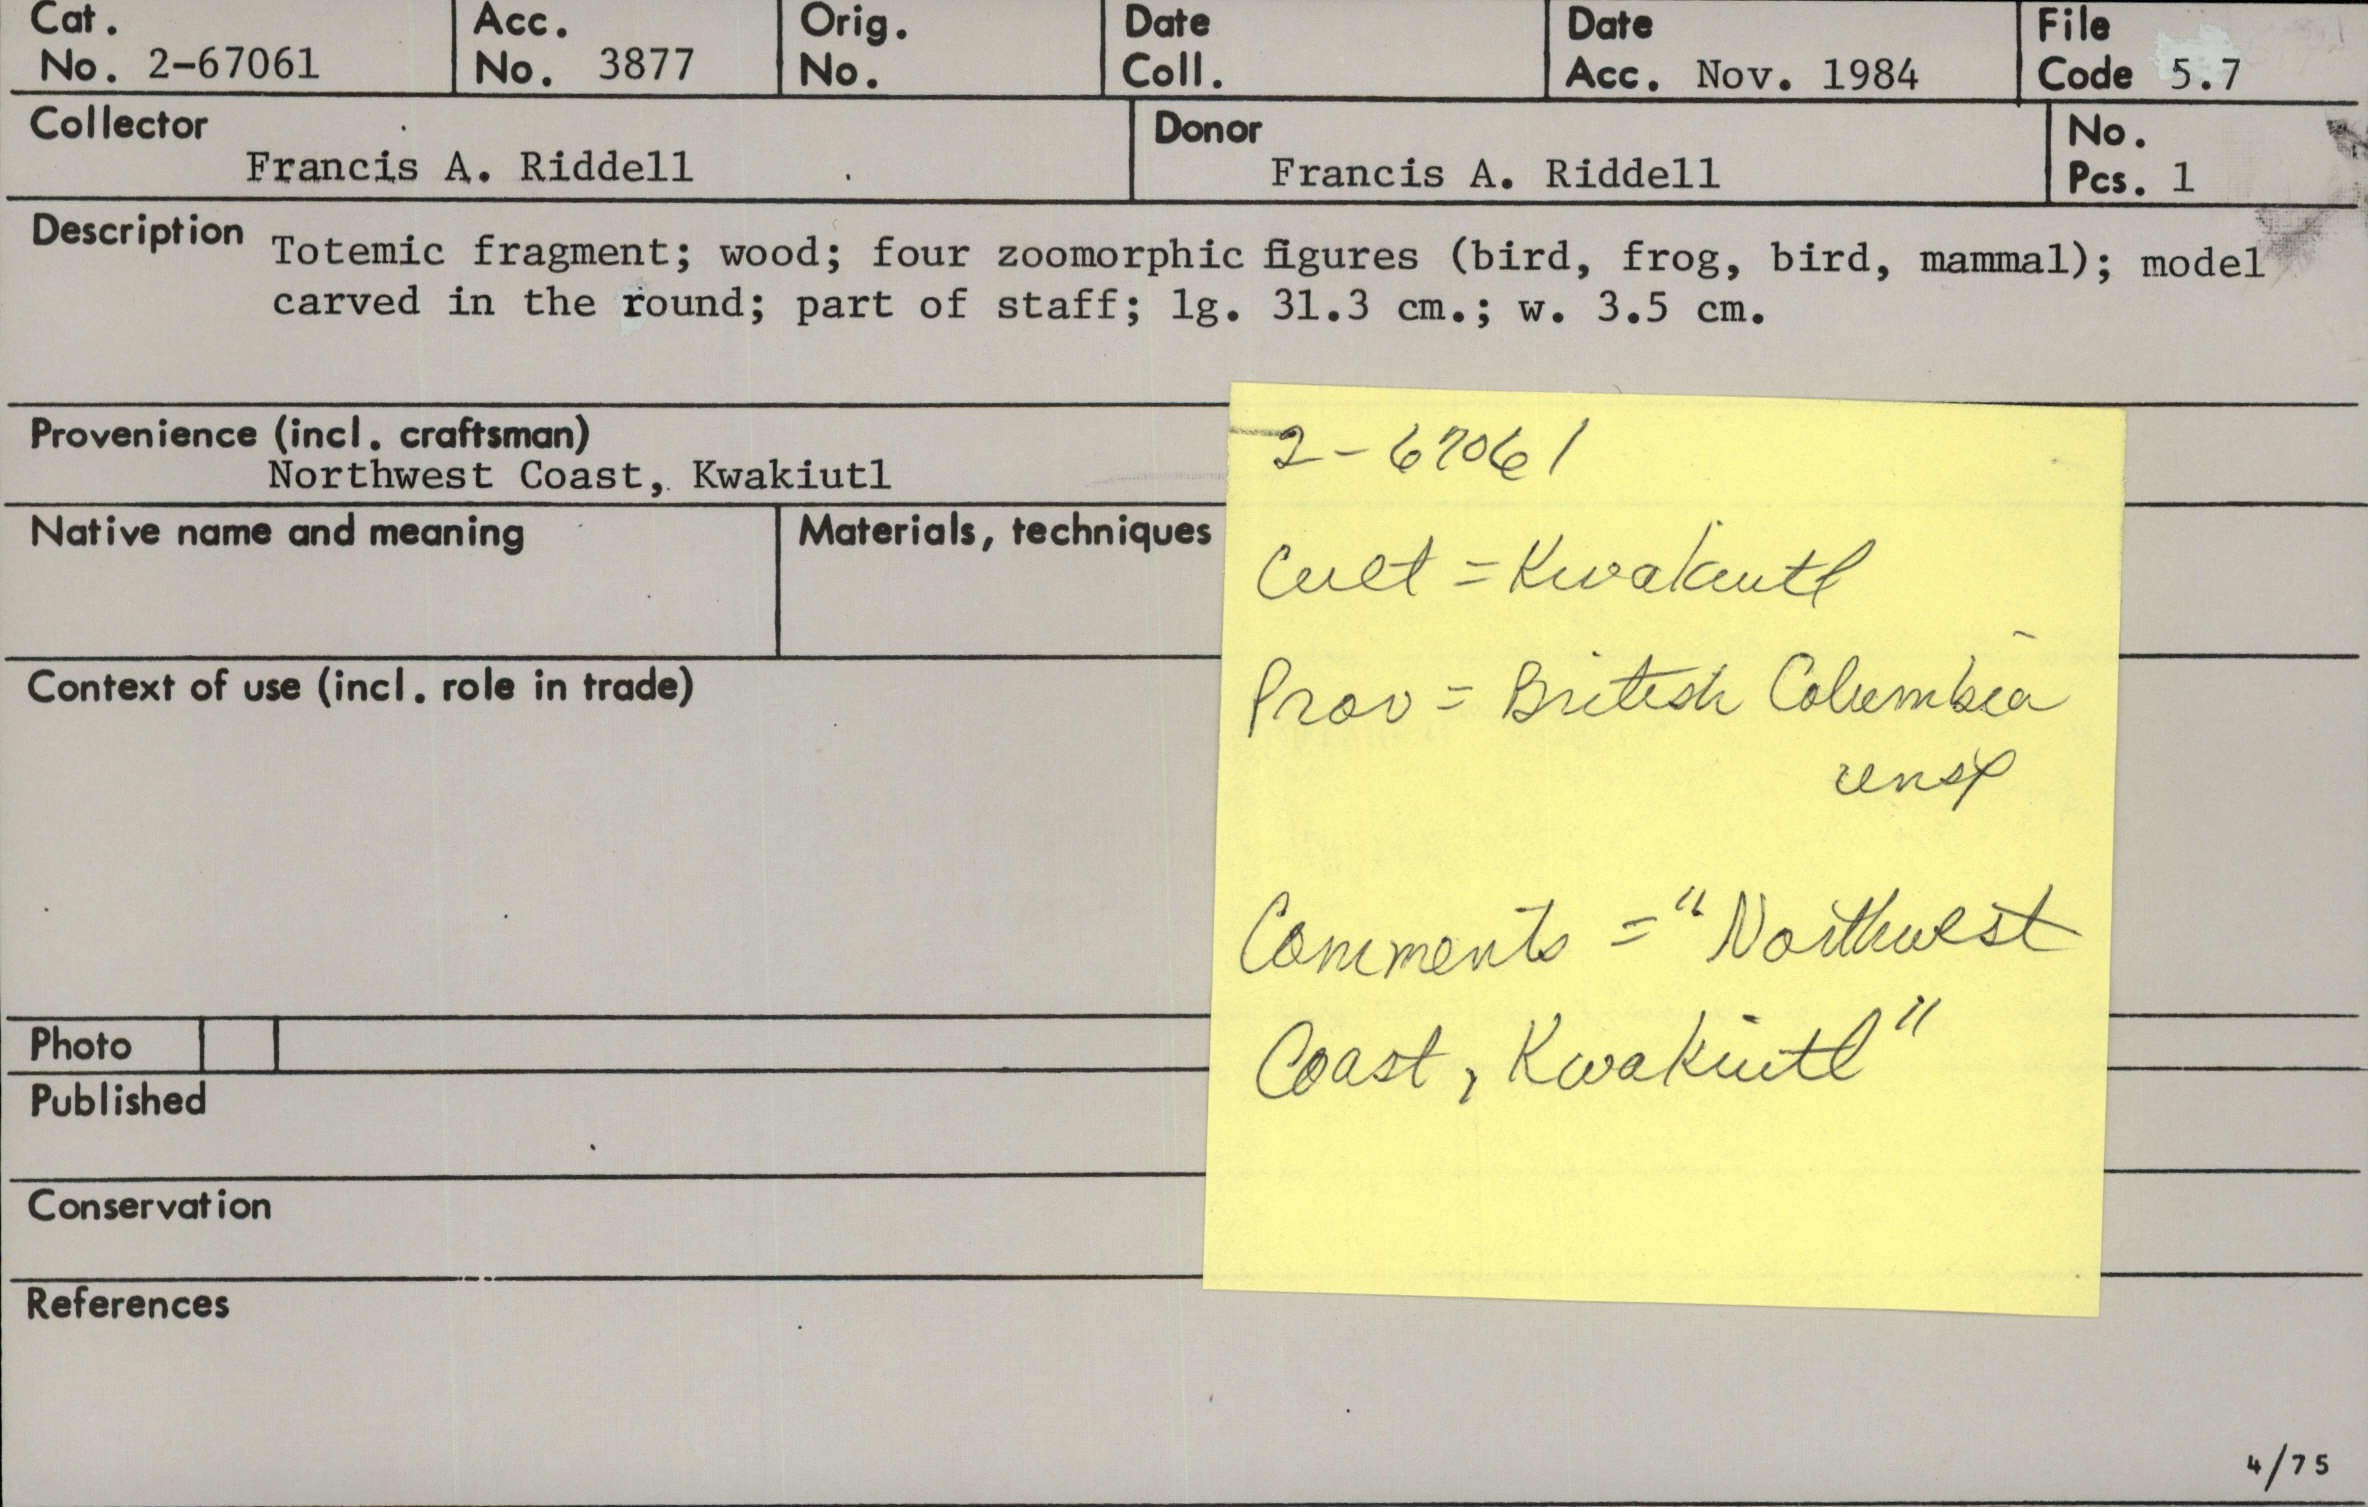 Cat. No. 2-67061
Acc. No. 3877
Orig. No.
Date Coll.
Date Acc. Nov. 1984
File Code 5.7
Collector
Francis A. Riddell
Donor
Francis A. Riddell
No. Pcs. 1
Description
Totemic fragment; wood; four zoomorphic figures (bird, frog, bird, mammal); model
carved in the round; part of staff; lg. 31.3 cm.; w. 3.5 cm.
Provenience (incl. craftsman)
Northwest Coast, Kwakiutl
Native name and meaning
Materials, techniques
Context of use (incl. role in trade)
Photo
Published
Conservation
References
4/75
2-67061
Cult = Kwakiutl
Prov = British Columbia
unsp
Comments = "Northwest
Coast, Kwakiutl"